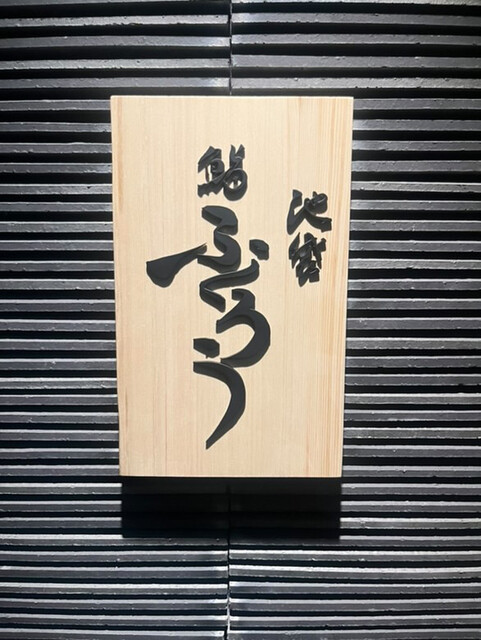 池袋
鮨
ふくろう